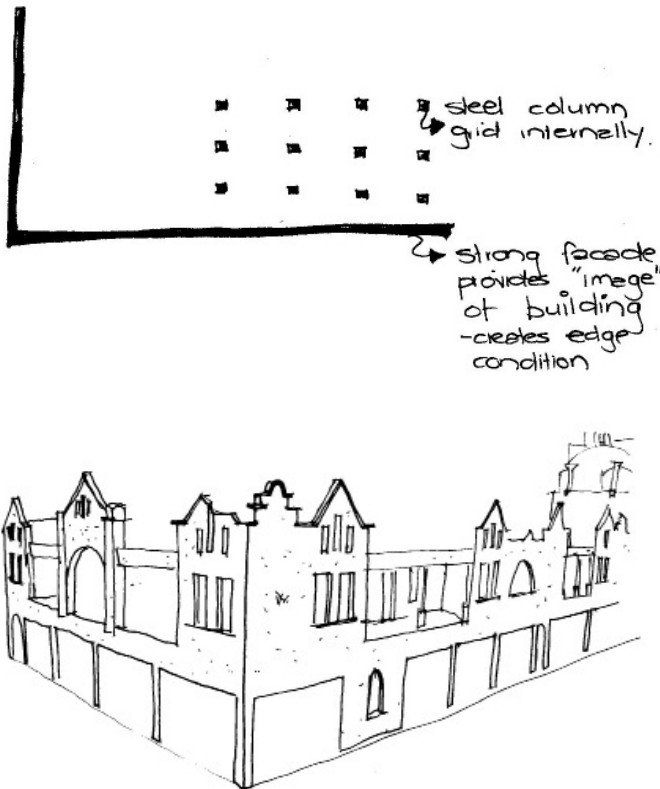 steel column
grid internally.
strong facade
provides "image"
of building
-creates edge
condition